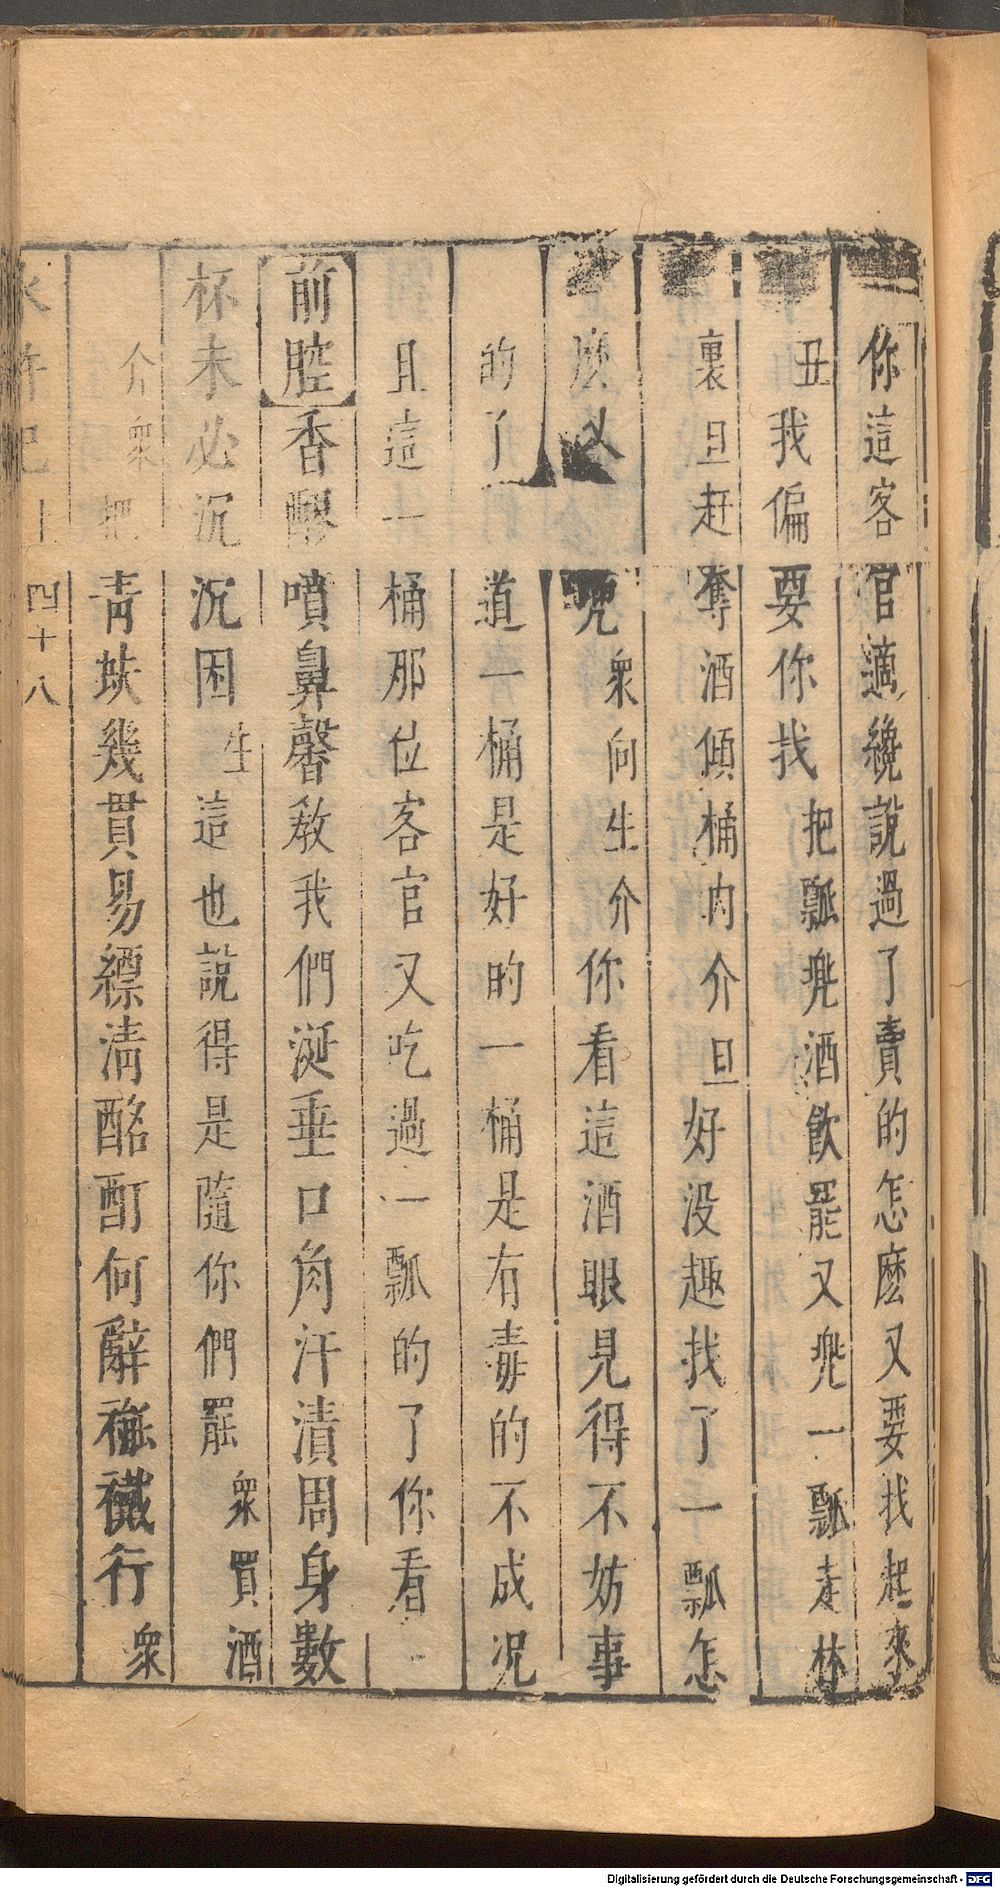 你這客官適纔說過了賣的怎麽又要找起來
丑我偏要你找把瓢兜酒飮罷又兜一瓢走林
裏旦赶奪酒傾桶内介旦好没趣找了一瓢怎
麽又兜衆向生介你看這酒眼見得不妨事
的了道一桶是好的一桶是有毒的不成况
且這一桶那位客官又吃過一瓢的了你看
前腔香醪噴鼻馨教我們涎垂口角汗漬周身數
杯未必沉沉困生這也說得是隨你們罷衆買酒
介衆把青蚨幾貫易縹淸酩酊何辭褦襶行衆
水滸記上 四十八
Digitalisierung gefördert durch die Deutsche Forschungsgemeinschaft - DFG